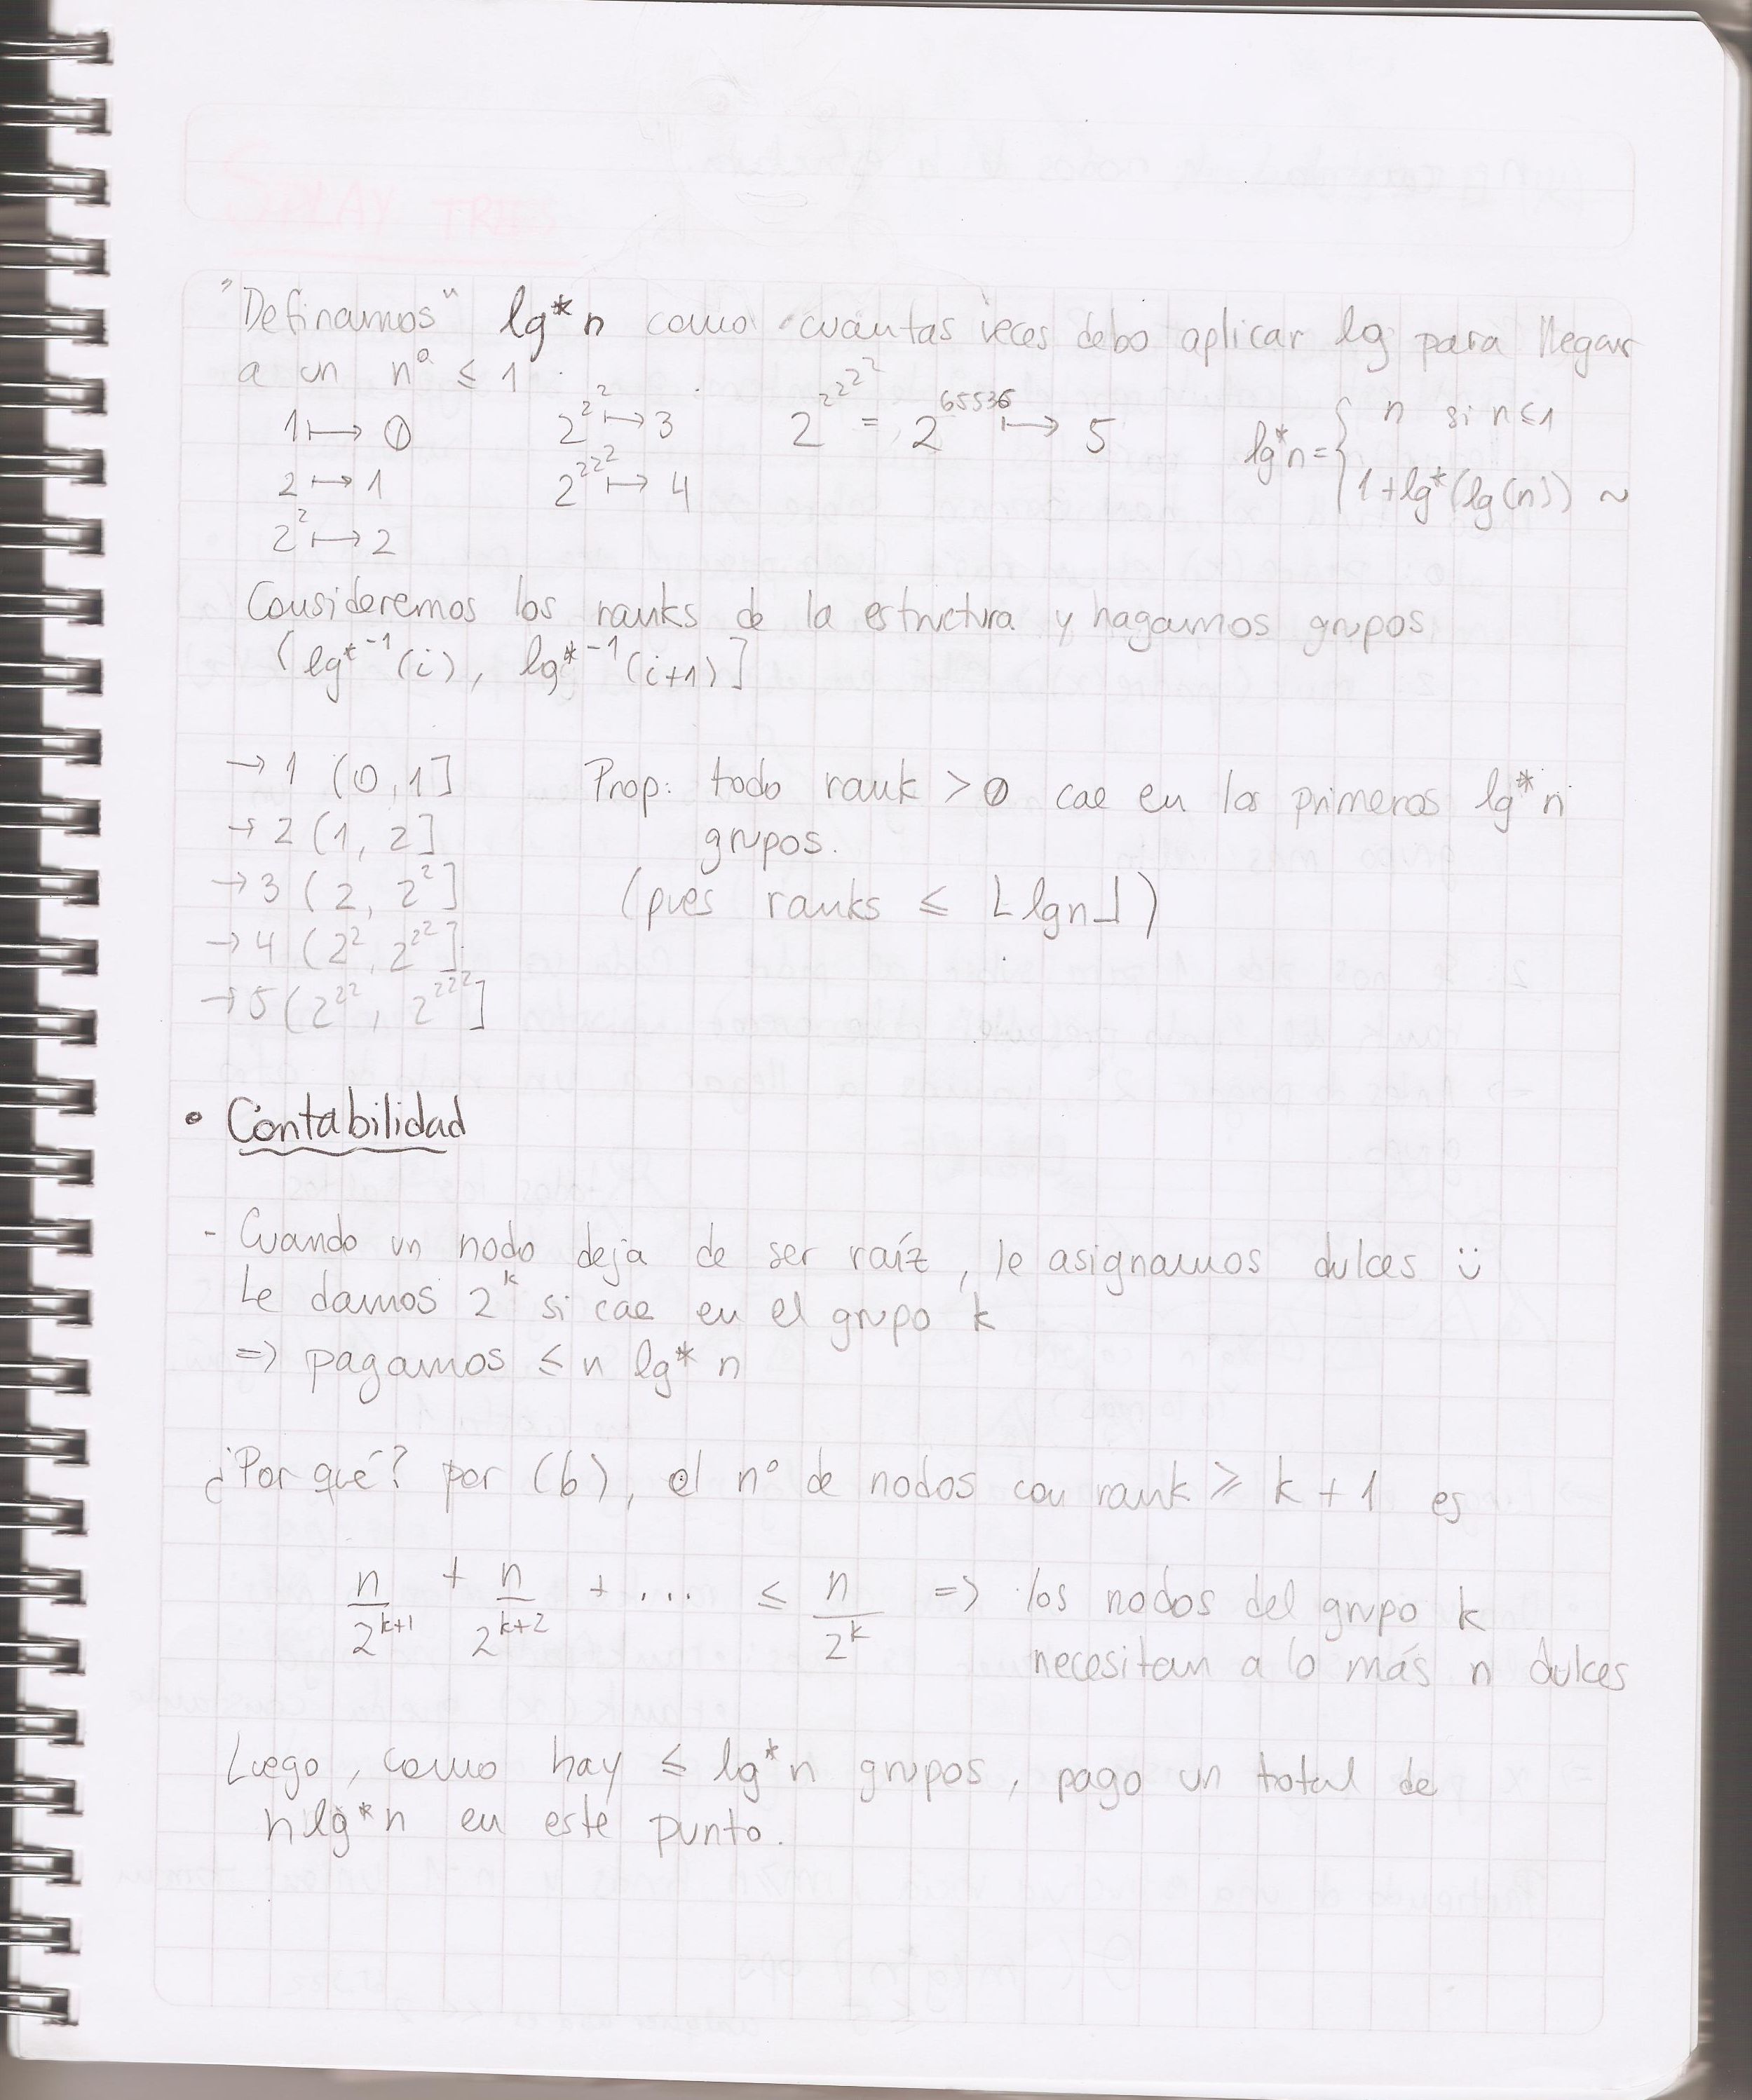 "Definamos" lg*n como cuántas veces debo aplicar lg para llegar
a un nº ≤ 1
1 ↦ 0
2 ↦ 1
2^2 ↦ 2
2^2^2 ↦ 3
2^2^2^2 ↦ 4
2^2^2^2^2 = 2^65536 ↦ 5
lg*n = { n si n ≤ 1
1 + lg*(lg(n)) ~
Consideremos los ranks de la estructura y hagamos grupos
(lg*^-1(i), lg*^-1(i+1)]
→ 1 (0, 1]
→ 2 (1, 2]
→ 3 (2, 2^2]
→ 4 (2^2, 2^2^2]
→ 5 (2^2^2, 2^2^2^2]
Prop: todo rank > 0 cae en los primeros lg*n
grupos.
(pues ranks ≤ ⌊lgn⌋)
• Contabilidad
- Cuando un nodo deja de ser raíz, le asignamos dulces :)
Le damos 2^k si cae en el grupo k
=> pagamos ≤ n lg* n
¿Por qué? por (b), el nº de nodos con rank ≥ k + 1 es
n/2^(k+1) + n/2^(k+2) + ... ≤ n/2^k => los nodos del grupo k
necesitan a lo más n dulces
Luego, como hay ≤ lg*n grupos, pago un total de
n lg*n en este punto.